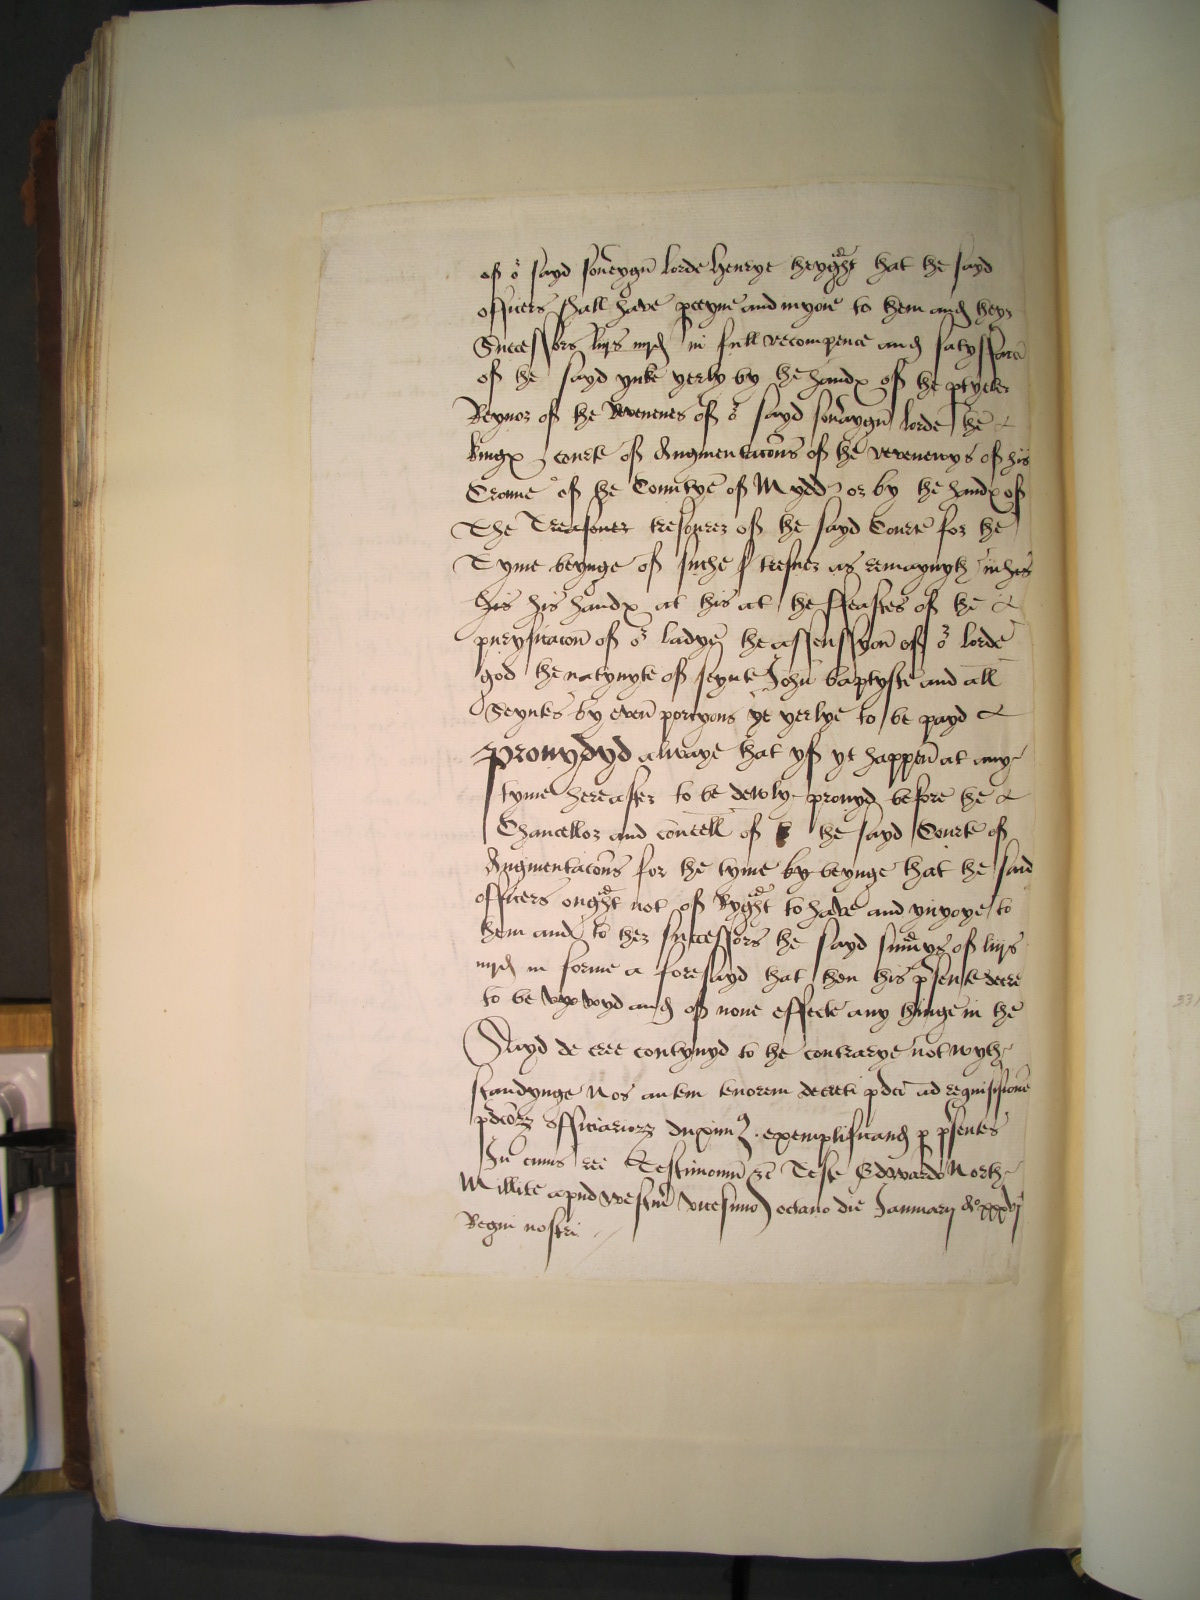 of oʳ sayd soveygn lorde Henrye heyght hat he sayd
officers shall have pceyve and inyoie to hem and heyr
Successors liijs iiijd in full recompence and satysfacc
of he sayd ynke yerly by he handx of he ptycler
Reyvor of he Revenews of oʳ sayd soveraygn lorde he
kingx courte of Augmentacions of he revenewys of his
Crowne of he Countye of Mydd or by he handx of
The Treasourer tresourer of he sayd Courte for he
Tyme beynge of suche tresur as remaynyth in his
his his handx at his at he ffeastes of he
puryficacon of oʳ ladye he assenssyon of oʳ lorde
god he natyvyte of seynte John baptyste and all
Seyntes by even porcyons ye yerlye to be payd
provydyd alwaye hat yf yt happen at any
tyme hereafter to be dewly provyd before he
Chancellor and councell of he sayd Courte of
Augmentacions for he tyme by beynge hat he said
officers ought not of Ryght to have and ynyoye to
hem and to her successors he sayd sumys of liijs
iiijd in forme a foresayd hat hen his psente decre
to be voyd and of none effecte any hinge in he
Sayd de cree contynyd to he contrarye not wyth
standynge Nos autem tenorem decreti pdci ad requisicione
pdcorz officiariorz duximus exemplificand p psentes
In cuius rei testimonium Teste Edwardo North
Millite apud westm vicesimo octavo die Januarij Aº xxxvj
Regni nostri